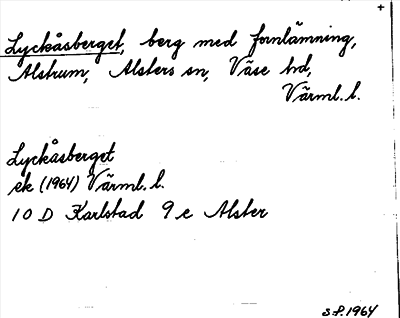 +
Lyckåsberget, berg med fornlämning,
Alstrum, Alsters sn, Väse hd,
Värml. l.
Lyckåsberget
ek (1964) Värml. l.
10 D Karlstad 9 e Alster
S.F. 1964